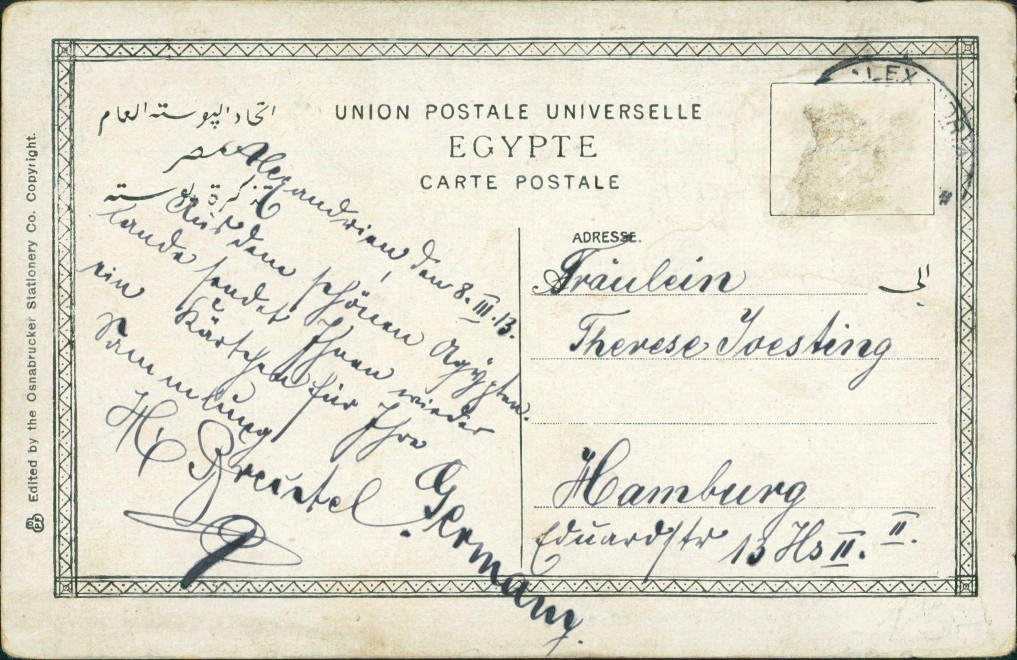 اتحاد البوسته العام
مصر
تذكرة بوسته
UNION POSTALE UNIVERSELLE
EGYPTE
CARTE POSTALE
ADRESSE.
الى
Alexandrien, den 8. III. 13.
Aus dem schönen Ägypten-
lande sendet Ihnen wieder
ein Kärtchen für Ihre
Sammlung
H. Breutel
Fräulein
Therese Joesting
Hamburg
Eduardstr 13 Hs II. II.
Germany.
Edited by the Osnabrucker Stationery Co. Copyright.